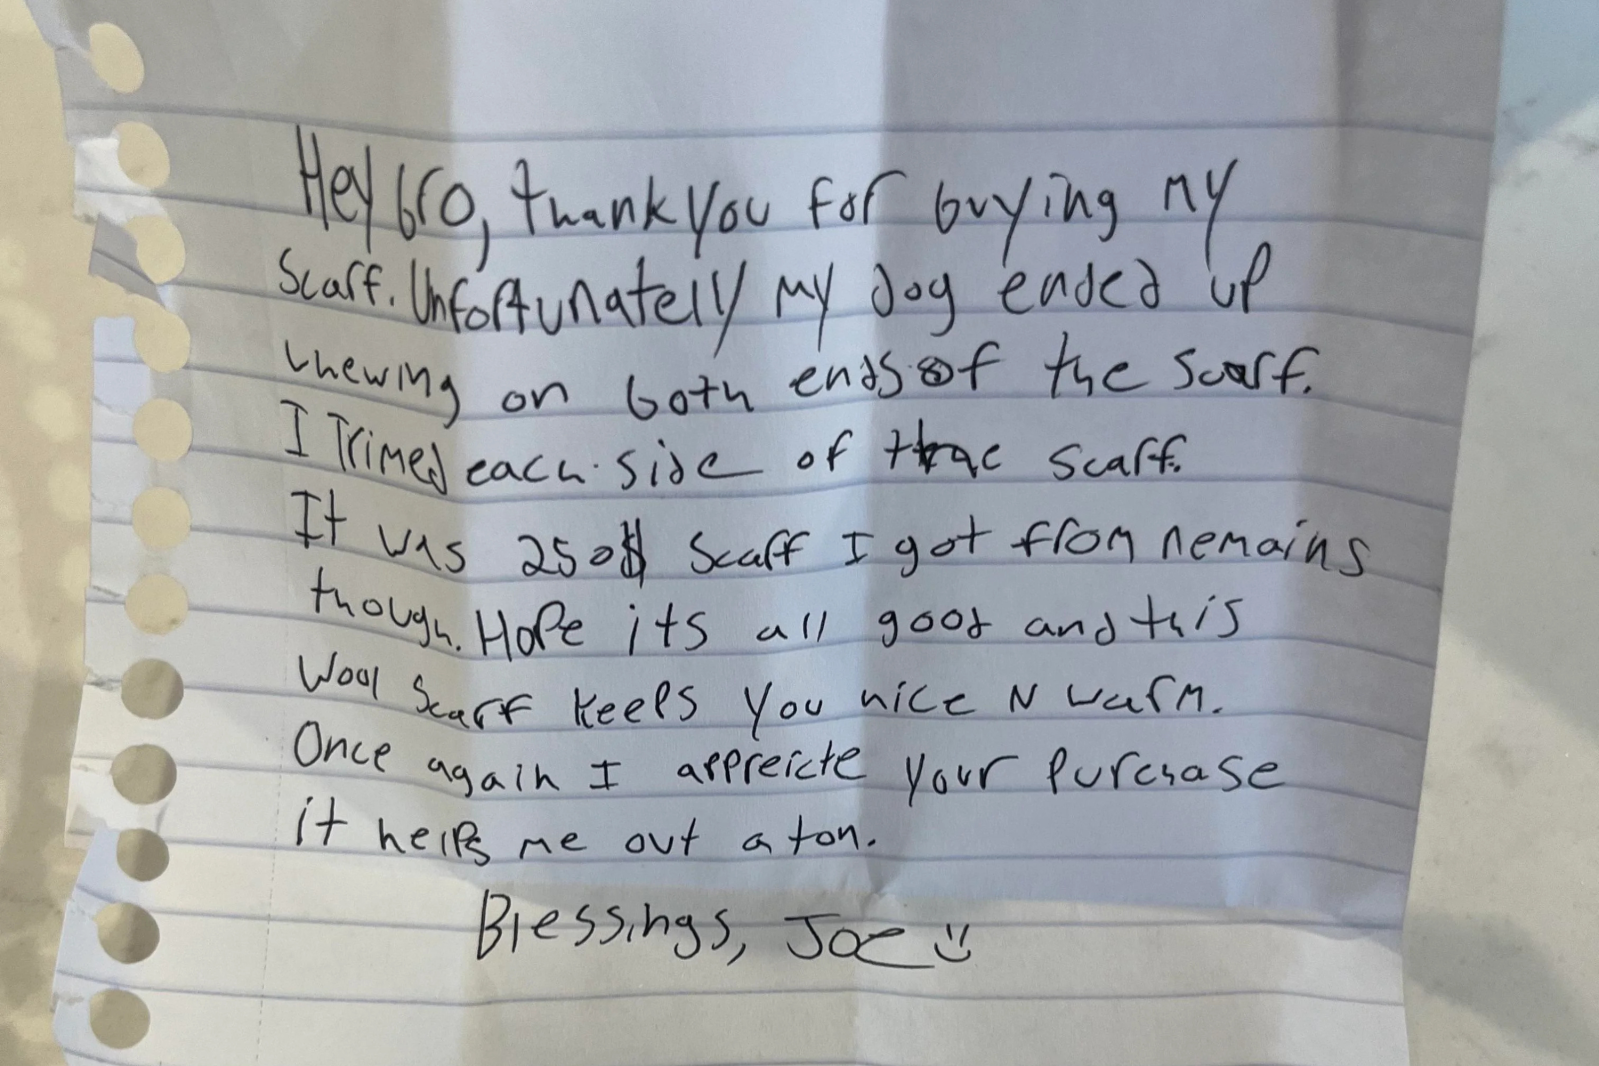 Hey bro, thank you for buying my
Scarf. Unfortunately my dog ended up
chewing on both ends of the scarf.
I Trimed each side of the scarf.
It was 250$ scarf I got from nemains
though. Hope its all good and this
Wool scarf keeps you nice N warm.
Once again I appreicte your purchase
it helps me out a ton.
Blessings, Joe